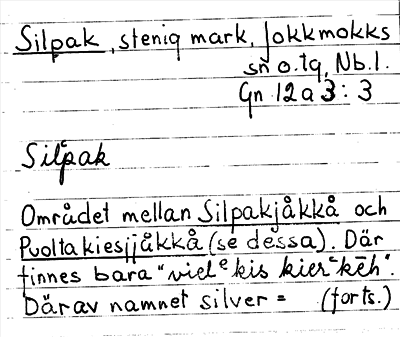 Silpak, stenig mark, Jokkmokks
sn o. tg, Nb. l.
Gn 12 a 3 : 3
Silpak
Området mellan Silpakjåkkå och
Puoltakiesjjåkkå (se dessa). Där
finnes bara "vielᵉkis kierᵉkēh".
Därav namnet silver = (forts.)